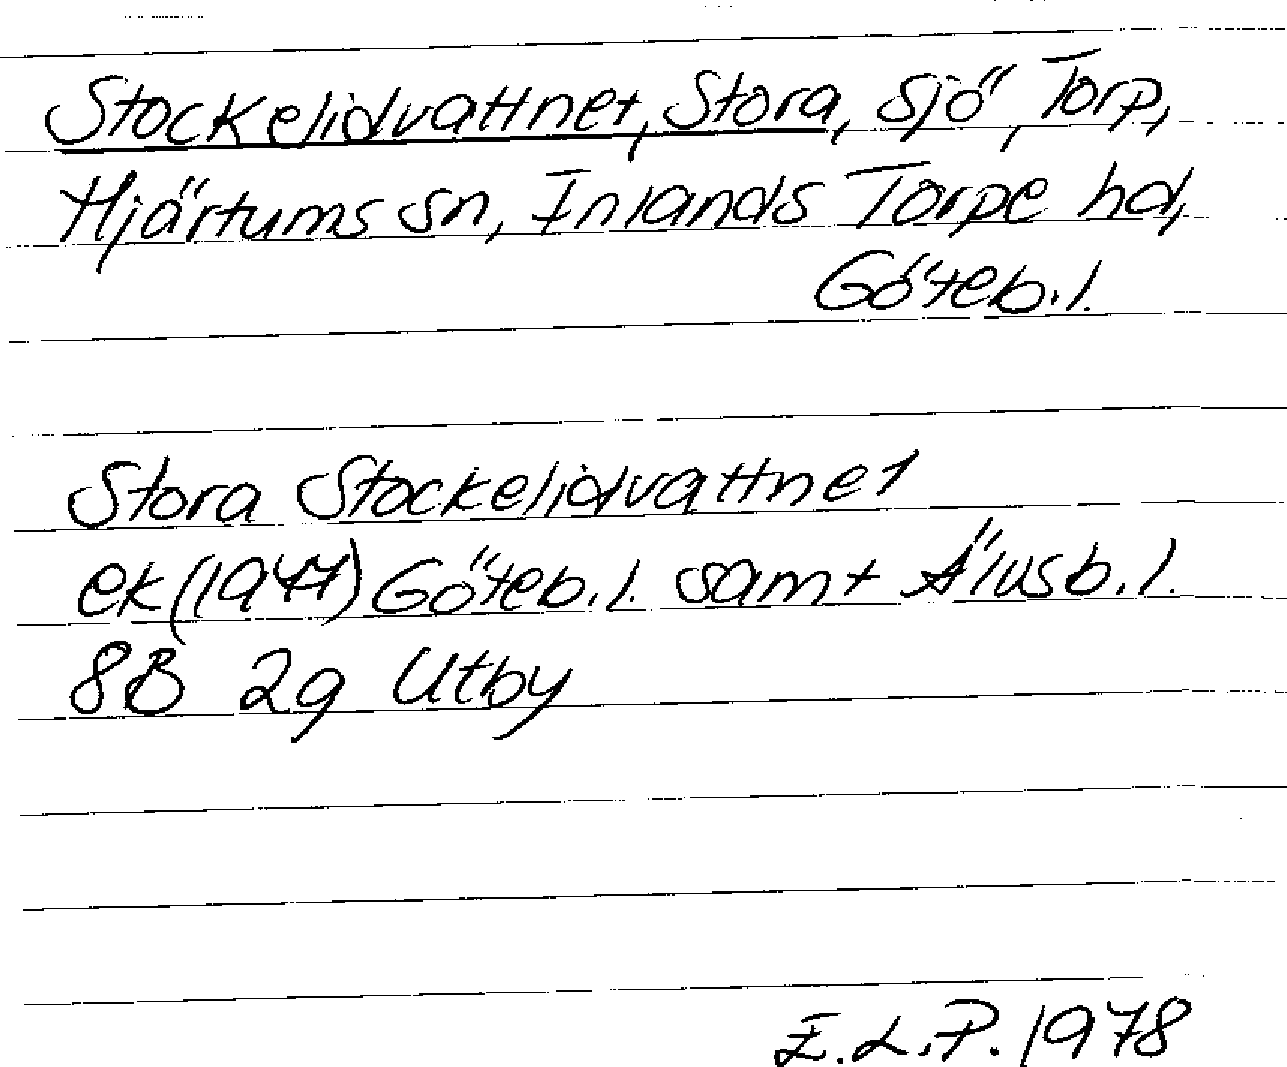 Stockelidvattnet, Stora, sjö, Torp,
Hjärtums sn, Inlands Torpe hd,
Göteb. l.
Stora Stockelidvattnet
ek (1977) Göteb. l. samt Älvsb. l.
8B 2g Utby
E.L.P. 1978